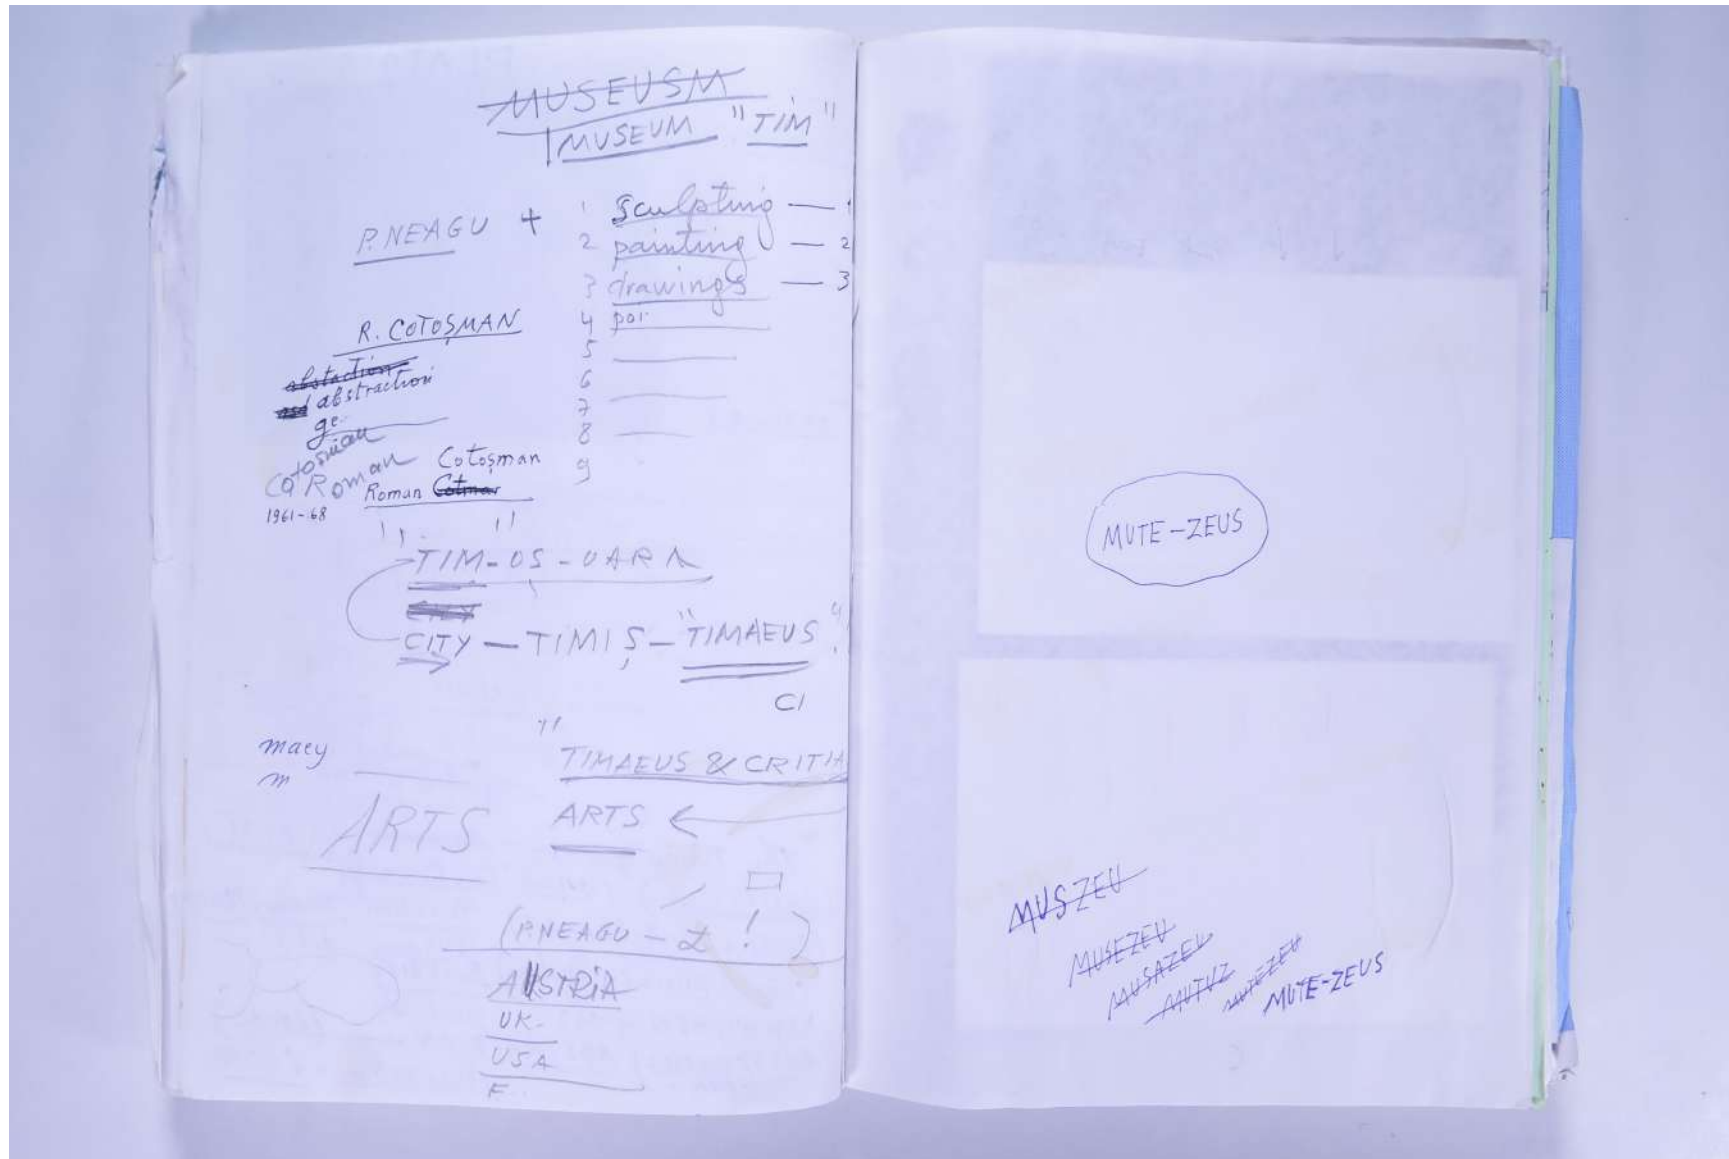 MUSEUSM
MUSEUM "TIM"
P. NEAGU + 1 Sculpting — 1
2 painting — 2
3 drawings — 3
R. COTOȘMAN 4 poi
abstaction 5
abstraction 6
ge 7
8
Cotosman 9
Roman
Cotoșman
Roman
1961-68
"TIM-OS-OARA"
CITY — TIMIȘ — "TIMAEUS"
CI
macy
m
" TIMAEUS & CRITIA
ARTS ARTS
(P. NEAGU - !)
AUSTRIA
UK
USA
F
MUTE-ZEUS
MUSZEU
MUSEZEU
MUSAZEU
MUTUZ
MUTEZEU
MUTE-ZEUS